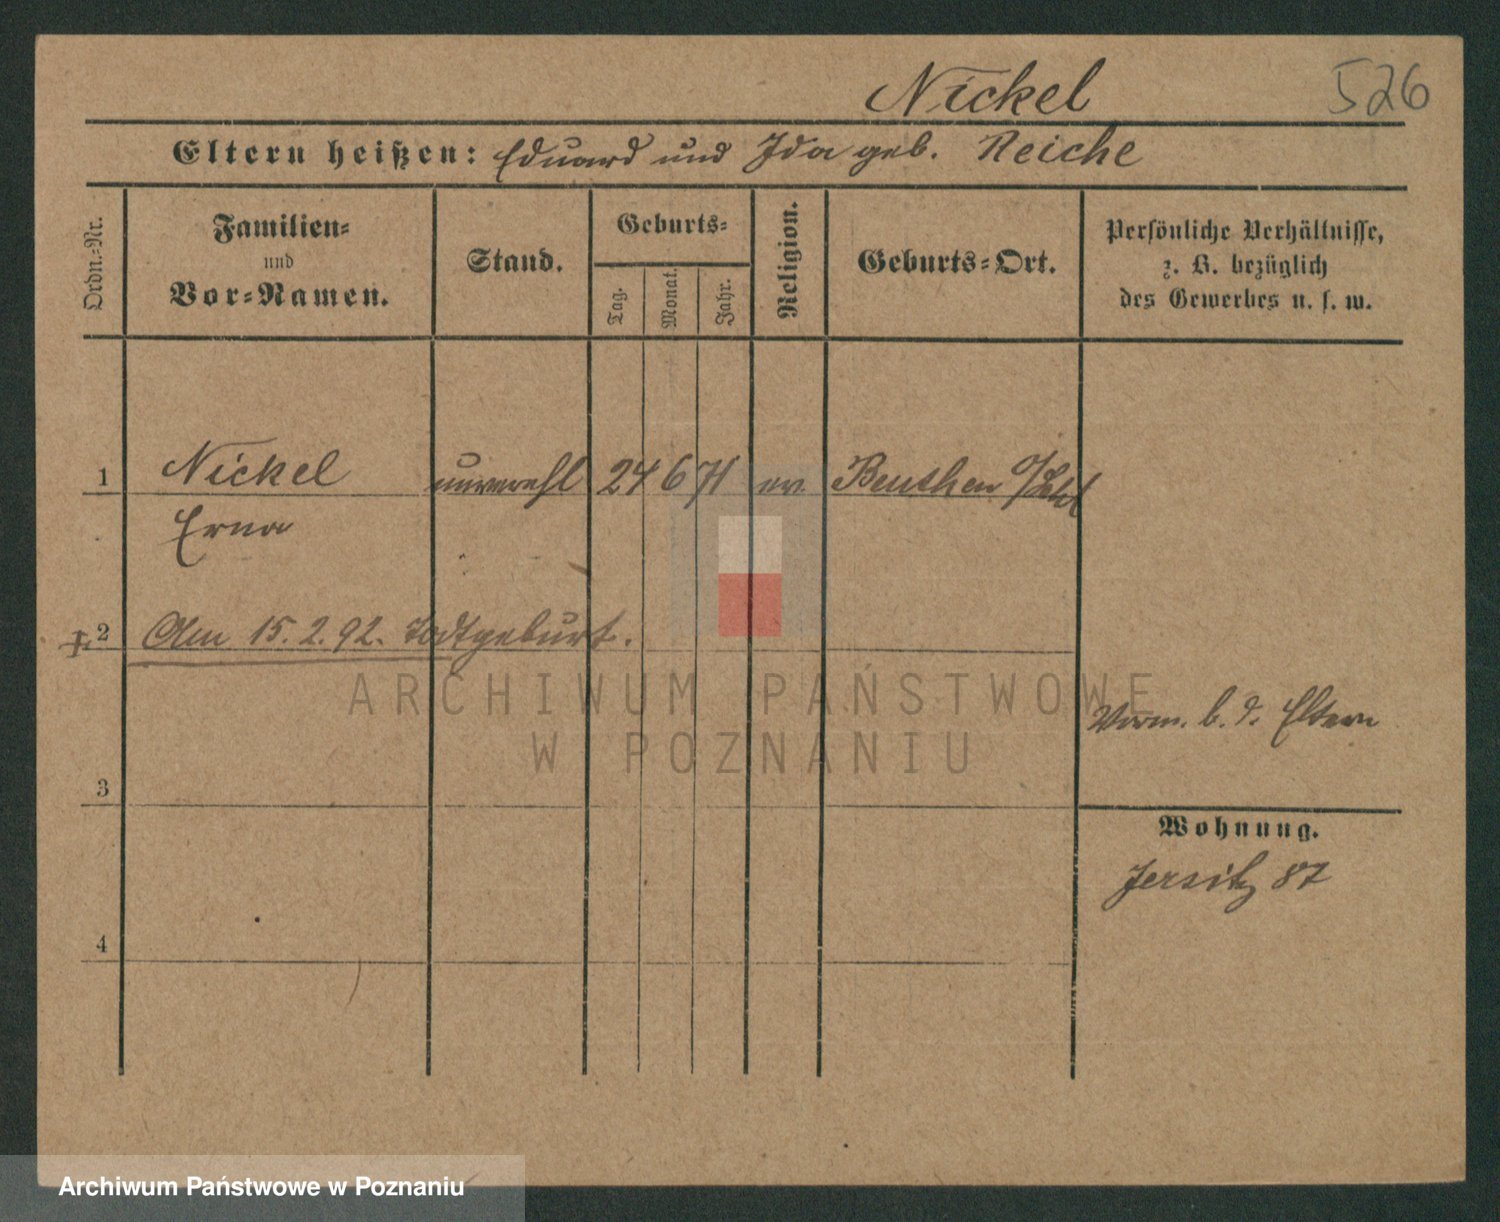 Nickel 526
Eltern heißen: Eduard und Ida geb. Reiche
Ordn.-Nr.
Familien-
und
Vor-Namen.
Stand.
Geburts-
Tag.
Monat.
Jahr.
Religion.
Geburts-Ort.
Persönliche Verhältnisse,
z. B. bezüglich
des Gewerbes u. s. w.
1 Nickel unverehl 24 6 71 ev. Beuthen
Erna
2 Am 15.2.92. Todtgeburt.
ARCHIWUM PAŃSTWOWE
W POZNANIU
b. d. Eltern
3
Wohnung.
Jersitz 87
4
Archiwum Państwowe w Poznaniu